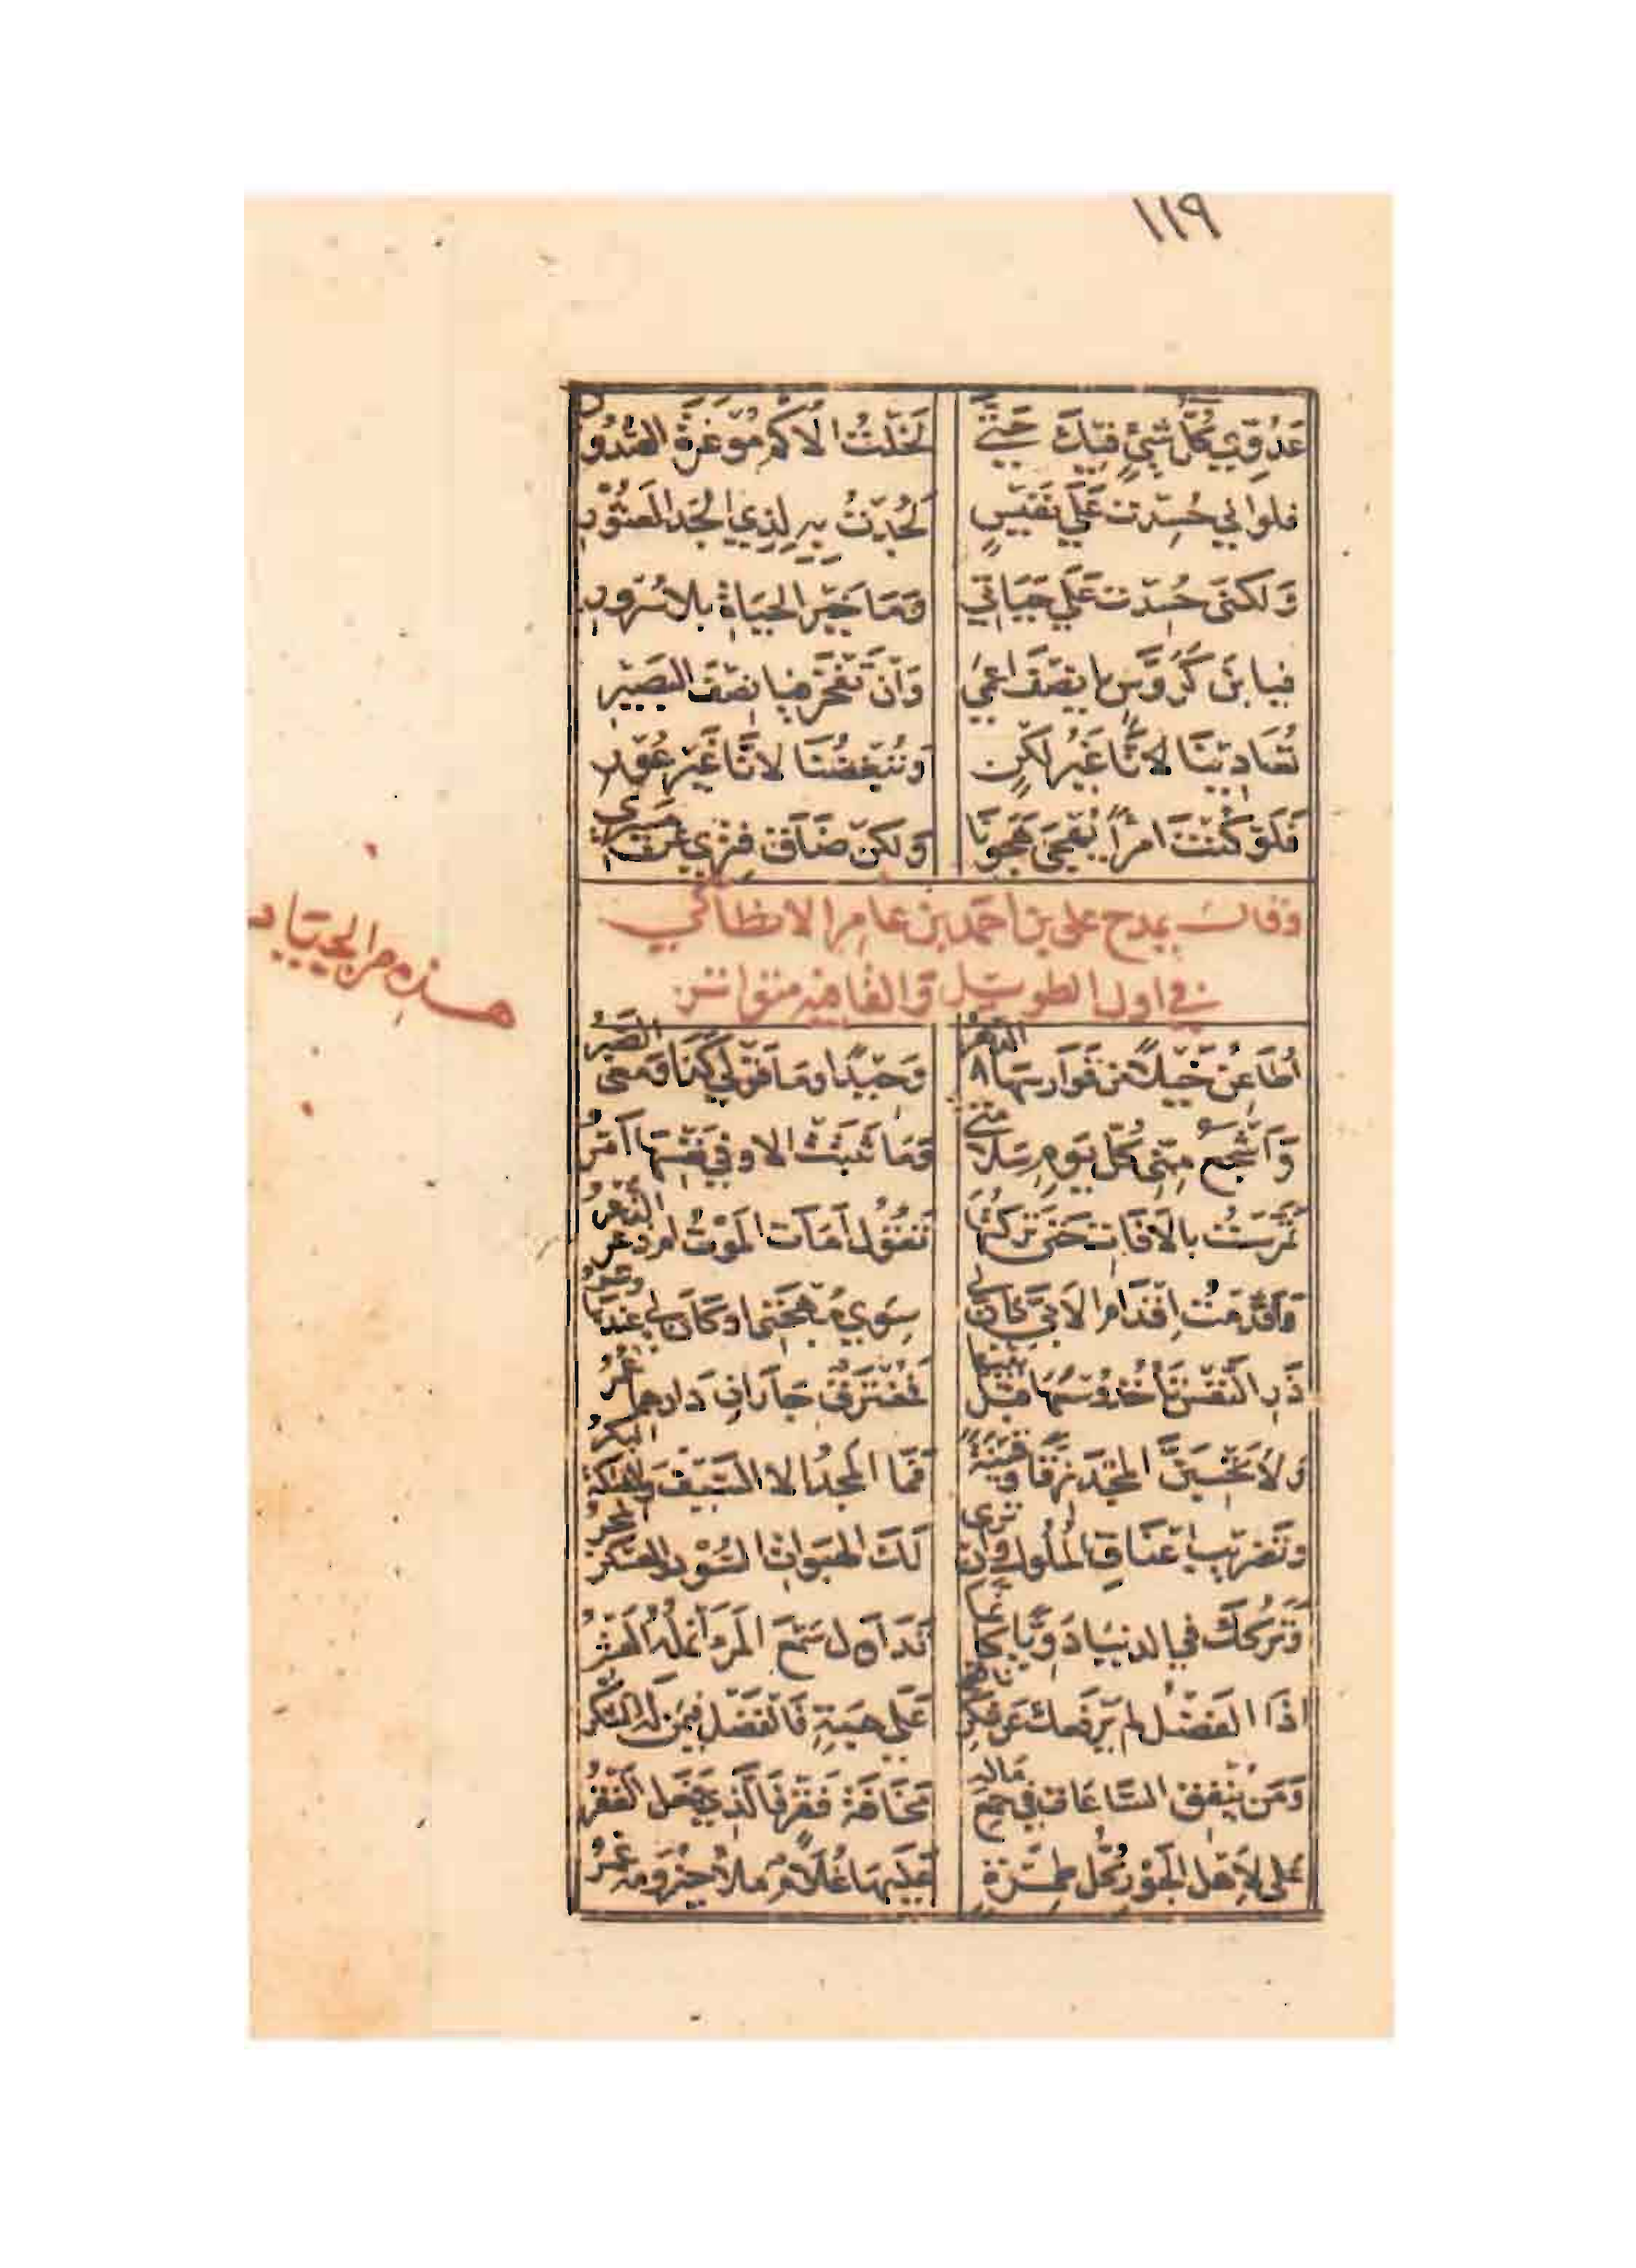 ١١٩
عَدُوّي كُلُّ شيْءٍ فيكَ حَتّى لَخِلْتُ الأكْمَ مُوغَرَةَ الصُّدُورِ
فلو اني حُسِدْت عَلَى نَفيسٍ لَجُدْتُ بِهِ لِذِي الجَد العَثُورِ
وَلكني حُسِدْت عَلَي حَيَاتي وَمَا خَيْر الحَيَاةِ بلا سُرُورِ
فيا بْنَ كَرَوَّسٍ يا نِصْفَ اعْمَى وَانْ تَفْخَرْ فيا نِصْفَ البَصِيْرِ
تُعَادِيْنَا لانَّا غَيْرُ لُكْنٍ وَتُبْغِضُنَا لانَّا غَيْر عُوْرِ
فَلَوْ كُنْتَ امْرَأً يُهْجَى هَجَوْنَا وَلكنْ ضَاقَ فِتْرٌ عَنْ مَسِيرِ
وقال يمدح علي بن احمد بن عامر الانطاكي
في اول الطويل والقافيه متواتر
هذه من الجياد
أُطَاعِنُ خَيْلاً مِن فَوَارسِهَا الدَّهْرُ وَحِيْدًا وَمَا قَوْلي كَذَا وَمَعي الصَّبْرُ
وَأَشْجَعُ مِنّي كُلَّ يَومٍ سَلامَتي وَمَا ثَبَتَتْ الا وفي نَفْسِهَا أَمْرُ
تَمَرَّسْتُ بالآفَاتِ حَتى تَرَكْتُهَا تَقُوْلُ أَمَاتَ المَوْتُ ام ذُعِرَ الذُّعْرُ
وَأقْدَمْتُ إقْدَامَ الأَتِيِّ كَأنَّ لي سِوَي مُهْجَتِي او كَانَ لي عِنْدَهَا وِتْرُ
ذَرِ النَّفْسَ تَأخُذْ وُسْعَهَا قبْلَ بَيْنِهَا فمُفْتَرِقٌ جَارَانِ دَارهما عُمْرُ
ولا تَحْسَبَنَّ المَجْدَ زِقًّا وقَيْنَةً فَمَا المَجْدُ الا السَّيْفُ والفتكة البِكْرُ
وتَضْرِيبُ أعْنَاقِ المُلُوكِ وأن تُرى لَكَ الهَبَوَاتُ السُّوْدُ والعسكر المَجْرُ
وتَرْكُكَ في الدنيا دَوِيًّا كأنما تَدَاوَل سَمْعَ المَرْء أنمُلُهُ العَشْرُ
اذَا الفَضْلُ لم يَرْفَعك عَن شُكْر نَاقِصٍ عَلَى هِبَةٍ فَالفَضْل فيمَن لَهُ الشُّكْرُ
وَمَنْ يُنْفِقِ السَّاعَاتِ في جَمْعِ مَالِهِ مَخَافَةَ فَقْرٍ فَالَّذِي فَعَلَ الفَقْرُ
عَلَي لِأَهْلِ الجَوْرِ كُلُّ طِمِرَّةٍ عَلَيْهَا غُلَامٌ مِلْأُ حَيْزُومِهِ غِمْرُ